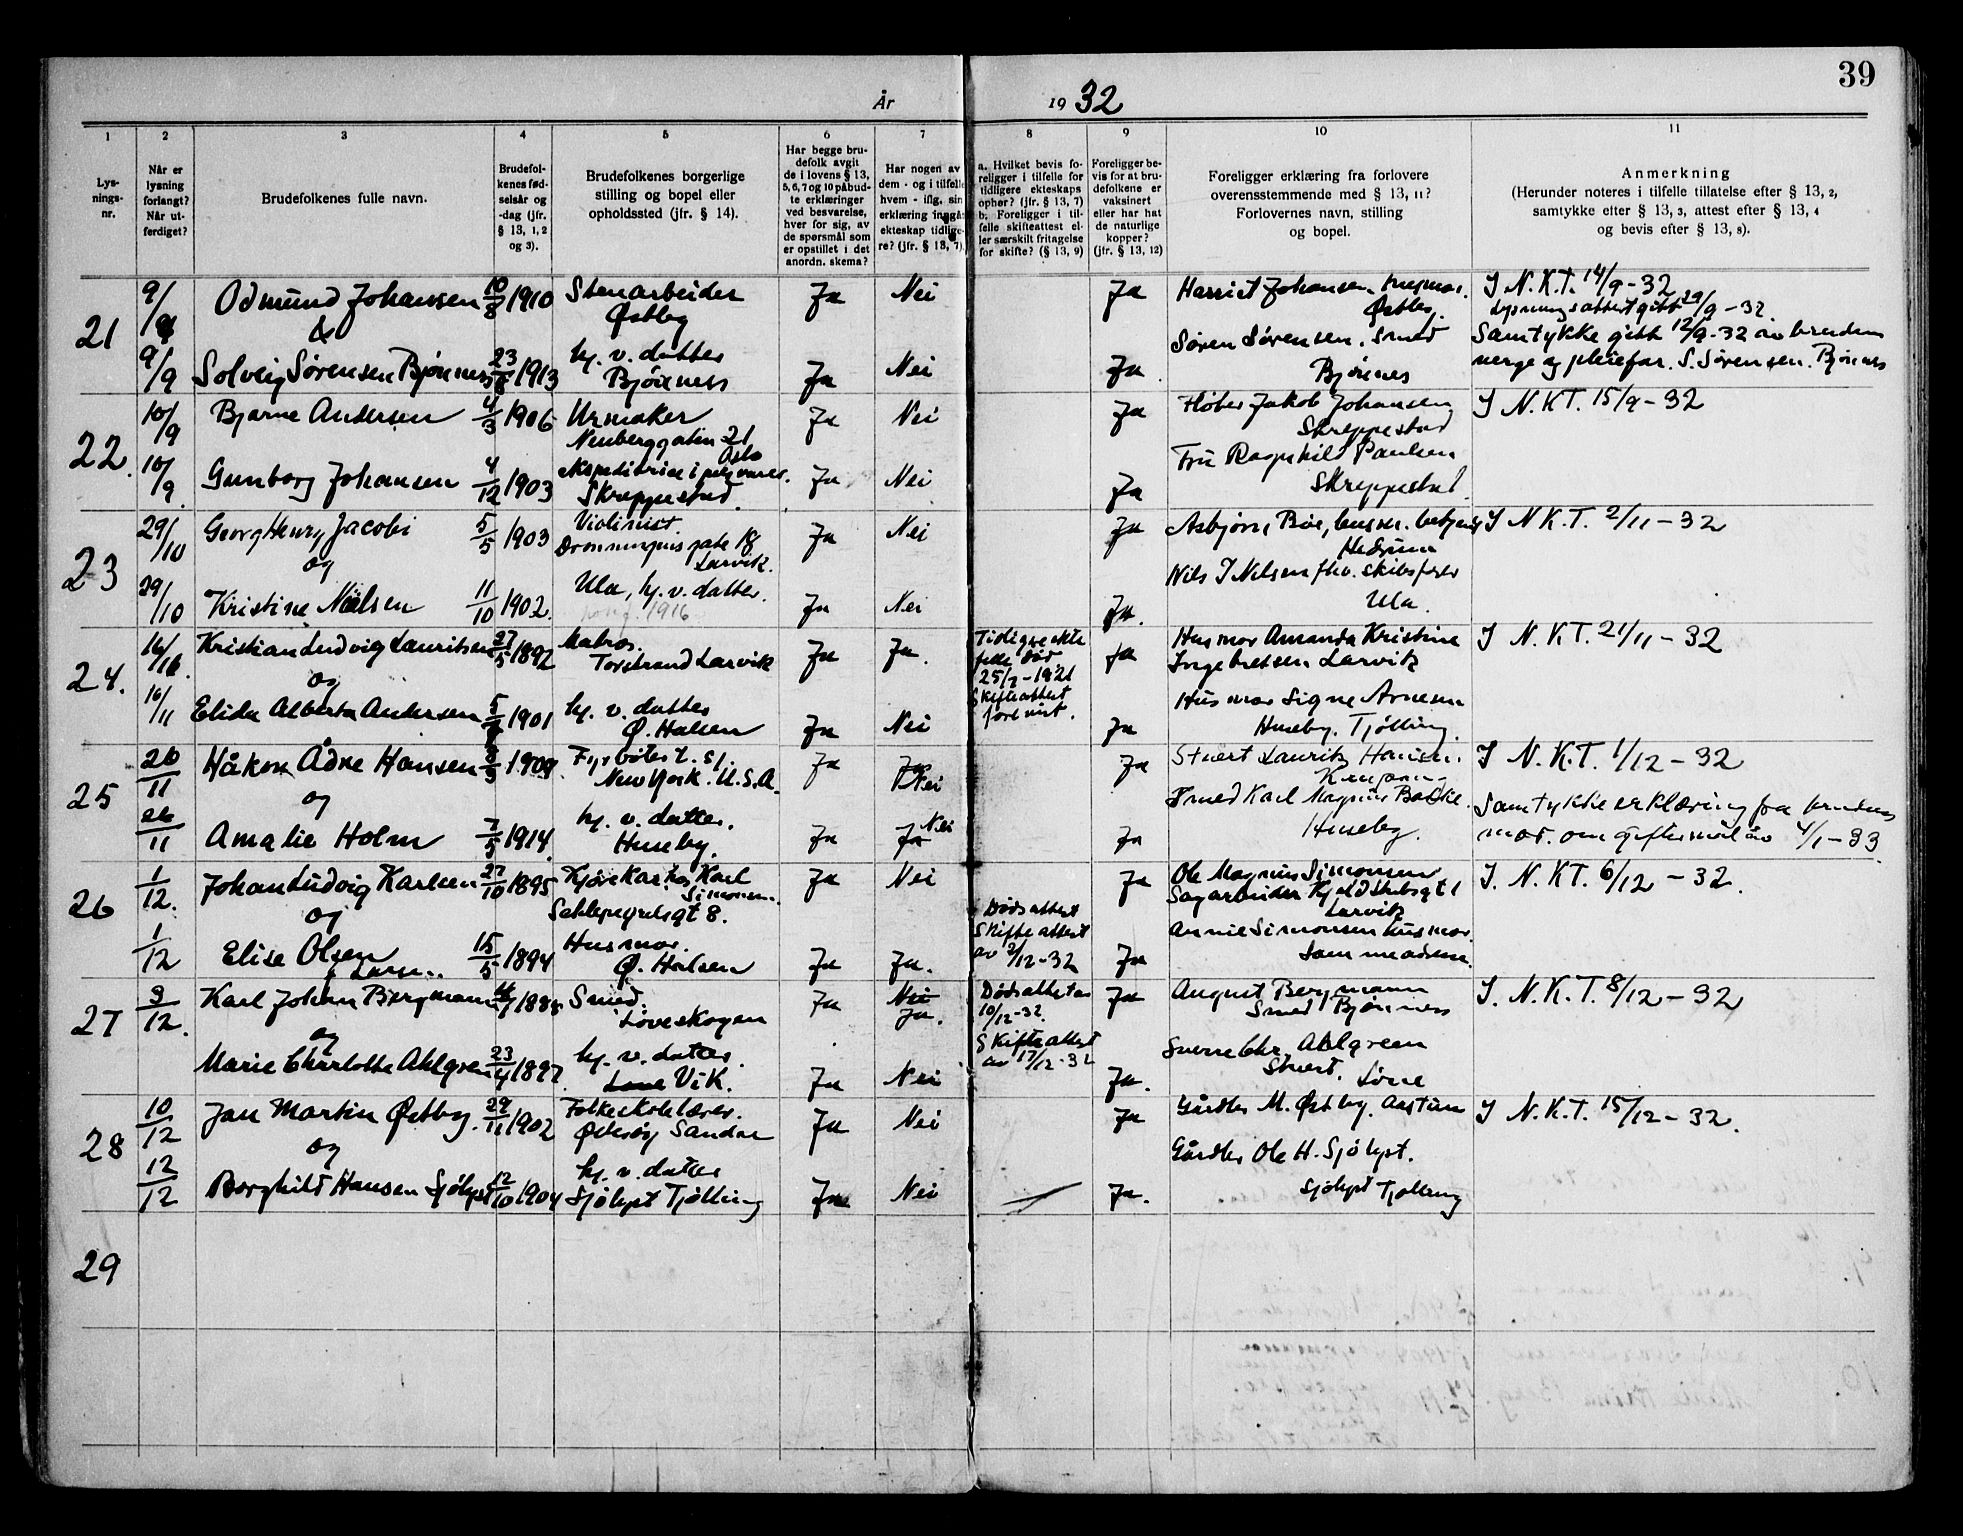 39
År 1932
1 2 3 4 5 6 7 8 9 10 11
Lys-
nings-
nr.
Når er
lysning
forlangt?
Når ut-
ferdiget?
Brudefolkenes fulle navn.
Brudefol-
kenes fød-
selsår og
-dag (jfr.
§ 13, 1, 2
og 3).
Brudefolkenes borgerlige
stilling og bopel eller
opholdssted (jfr. § 14).
Har begge bru-
defolk avgit
de i lovens § 13,
5, 6, 7 og 10 påbud-
te erklæringer
ved besvarelse,
hver for sig, av
de spørsmål som
er opstillet i det
anordn. skema?
Har nogen av
dem - og i tilfelle
hvem - iflg. sin
erklæring inngåt
ekteskap tidlige-
re? (jfr. § 13, 7)
a. Hvilket bevis fo-
religger i tilfelle for
tidligere ekteskaps
ophør? (jfr. § 13, 7)
b. Foreligger i til-
felle skifteattest el-
ler særskilt fritagelse
for skifte? (§ 13, 9)
Foreligger be-
vis for at bru-
defolkene er
vaksinert
eller har hat
de naturlige
kopper?
(jfr. § 13, 12)
Foreligger erklæring fra forlovere
overensstemmende med § 13, 11?
Forlovernes navn, stilling
og bopel.
Anmerkning
(Herunder noteres i tilfelle tillatelse efter § 13, 2,
samtykke efter § 13, 3, attest efter § 13, 4
og bevis efter § 13, 8).
21
9/9 Odmund Johansen 10/8 1910 Stenarbeider Ja Nei Ja Harriet Johansen, husmor. I N.K.T. 14/9-32
& Østby Østby. Lysningsattest gitt 29/9-32.
Søren Sørensen. Smed Samtykke gitt 12/9-32 av brudens
9/9 Solveig Sørensen Bjønnes 23/ 1913 hj. v. datter Ja Nei Ja. Bjønnes verge og pleiefar. S. Sørensen. Bjønnes
Bjønness
22.
10/9 Bjarne Andersen 4/3 1906 Urmaker Ja Nei Ja Jakob Johansen I N.KT. 15/9-32
Neuberggaten 21 Skreppestad
Oslo
10/9. Gunborg Johansen 4/12 1903 Ekspeditrise i Ja Nei Ja Fru Ragnhild Paulsen
Skreppestad. Skreppestad.
23
29/10 Georg Henry Jacobi 5/5 1903 Violinist Ja Nei Ja Asbjørn Bøe, I N K.T. 2/11-32
og Dronningens gate 18 Hedrum
Larvik.
29/10 Kristine Nielsen 11/10 1902. Ula, hj. v. datter. Ja Nei Ja. Nils J Nilsen fhv. skibsfører
1916 Ula.
24.
16/11 Kristian Ludvig Lauritsen 27/5 1892 Matros. Ja Ja. Tidligere ekte Ja Husmor Amanda Kristine I N.K.T. 21/11-32
og Torstrand Larvik felle død Ingebretsen Larvik
25/7-1921
16/11 Elida Alberta Andersen 5/ 1901 hj. v. datter Ja Nei Skifteattest Ja Husmor Signe Arnesen
Ø. Halsen forevist. Huseby. Tjølling.
25
26/11 Håkon Ådne Hansen 1909 Fyrbøter Ja Ja Ja Stuert Lauritz Hansen. I N.K.T. 1/12-32
og New York. U.S.A. Nei
26/11 Amalie Holm 7/5 1914. hj. v. datter. Ja Ja Nei Ja Smed Karl Magnus Bakke. Samtykkeerklæring fra brudens
Huseby. Huseby. mor. om giftermål av 4/1-33
26
1/12. Johan Ludvig Karlsen 27/10 1895 Kjørekar hos Karl Ja Nei Ja Ole Magnus Simonsen I. N. KT. 6/12-32.
og Simonsen. Sagarbeider Kjeldsbergsgt 1
8. Dødsattest Larvik
1/12 Elise Olsen 15/5 1894 Husmor. Ja Ja. Skifteattest Ja Annie Simonsen husmor.
f. Larsen. Ø. Halsen av 2/12-32 Samme adresse.
27
3/12. Karl Johan Bergmann 1885 Smed. Ja Nei Dødsattest av Ja August Bergmann I. N.K.T. 8/12-32
og Løveskogen Ja. 10/12-32. Smed Bjønnes
Skifteattest
Marie Charlotte Ahlgren 23/4 1897. hj. v. datter. Ja Nei av 17/12-32 Ja. Sverre Chr. Ahlgreen
Løve Vik. Stuert. Løve
28
10/12 Jan Martin Østby. 29/11 1902 Folkeskolelærer. Ja Nei Ja Gårdbr M. Østby. I N.K.T. 15/12-32.
og Sandar
12/12 Borghild Hansen Sjølyst 12/10 1904 hj. v. datter Ja Nei Ja. Gårdbr Ole H. Sjølyst.
Sjølyst Tjølling Sjølyst Tjølling
29